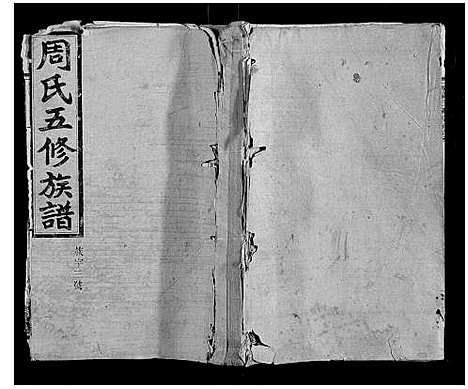 周氏五修族譜